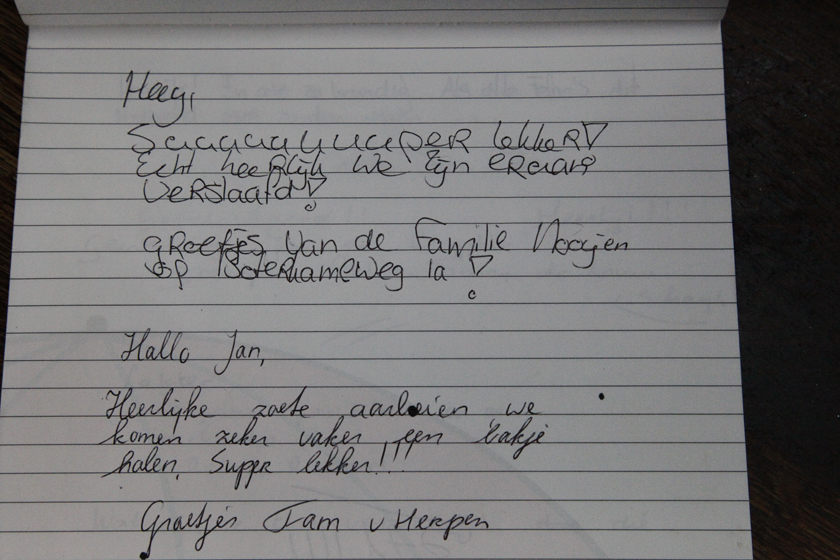 Heey,
Saaaauuuuper lekker!
Echt heerlijk we zijn eraan
verslaafd!
groetjes van de Familie Nooijen
op Boterhameweg 1a!
Hallo Jan,
Heerlijke zoete aarbeien we
komen zeker vaker een bakje
halen, Supper lekker!!!
Groetjes Fam v Herpen